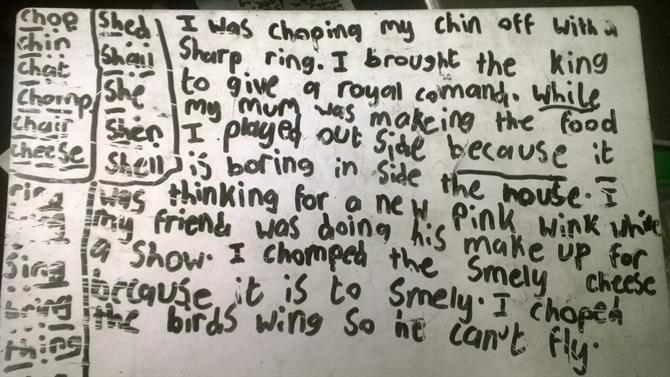 chop
chin
chat
chomp
chair
cheese
Sing
bring
thing
Shed
Shall
She
Shell
I was choping my chin off with a
Sharp ring. I brought the king
to give a royal comand. While
my mum was makeing the food
I played out side because it
is boring in side the house. I
was thinking for a new pink wink while
my friend was doing his make up for
a Show. I chomped the Smely cheese
because it is to Smely. I choped
the birds wing so he can't fly.